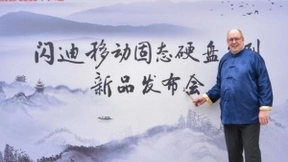 闪迪移动固态硬盘
新品发布会